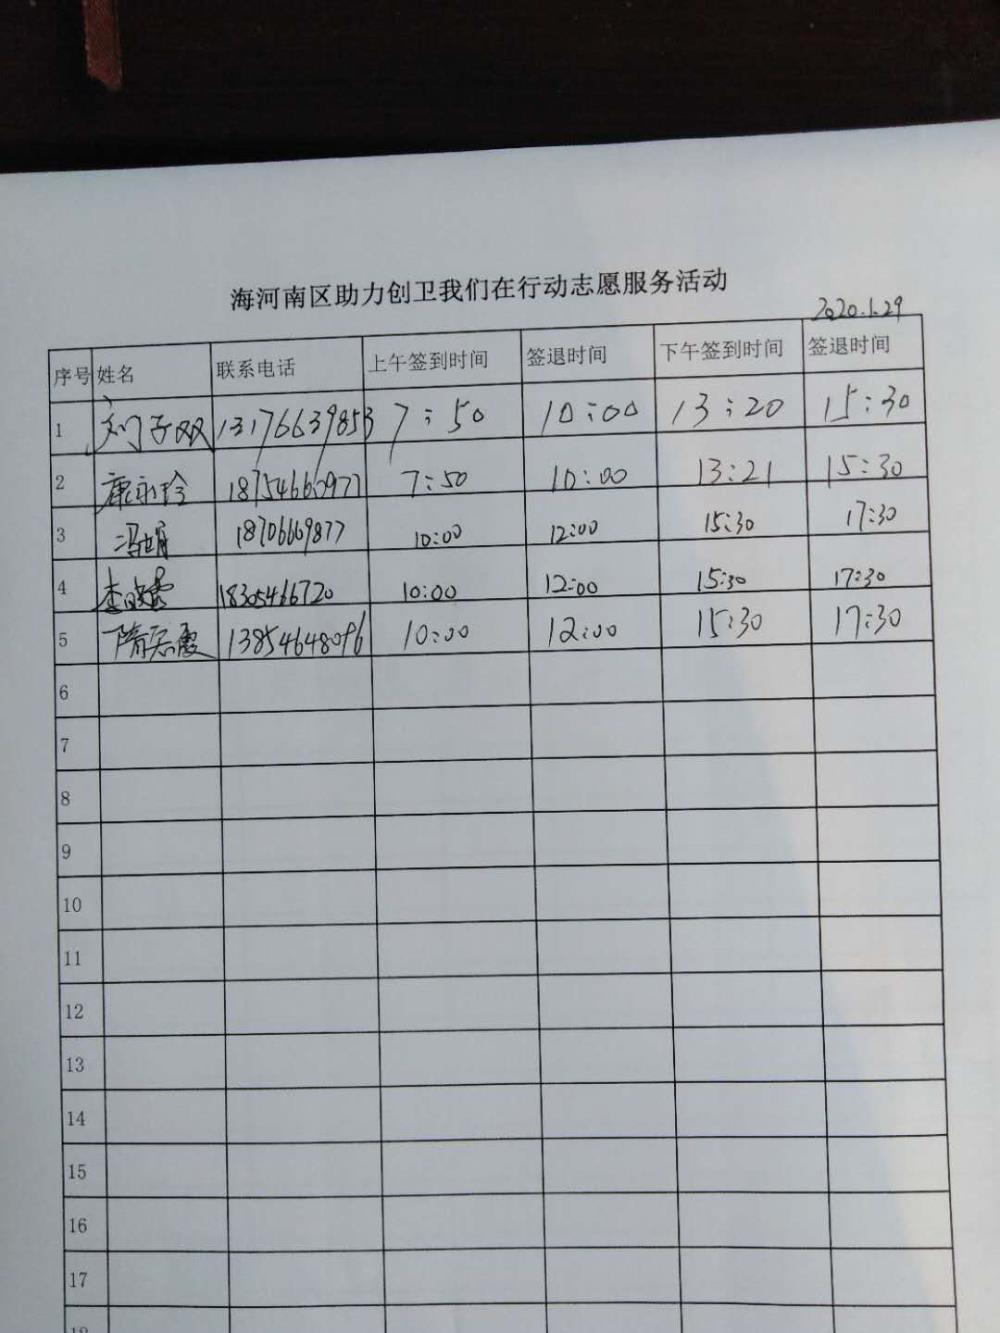 海河南区助力创卫我们在行动志愿服务活动
2020.1.29
序号 姓名 联系电话 上午签到时间 签退时间 下午签到时间 签退时间
1 刘子双 13176639853 7:50 10:00 13:20 15:30
2 康永玲 18754660977 7:50 10:00 13:21 15:30
3 冯娟 18706669877 10:00 12:00 15:30 17:30
4 李 18305466720 10:00 12:00 15:30 17:30
5 隋志霞 13854648096 10:00 12:00 15:30 17:30
6
7
8
9
10
11
12
13
14
15
16
17
18